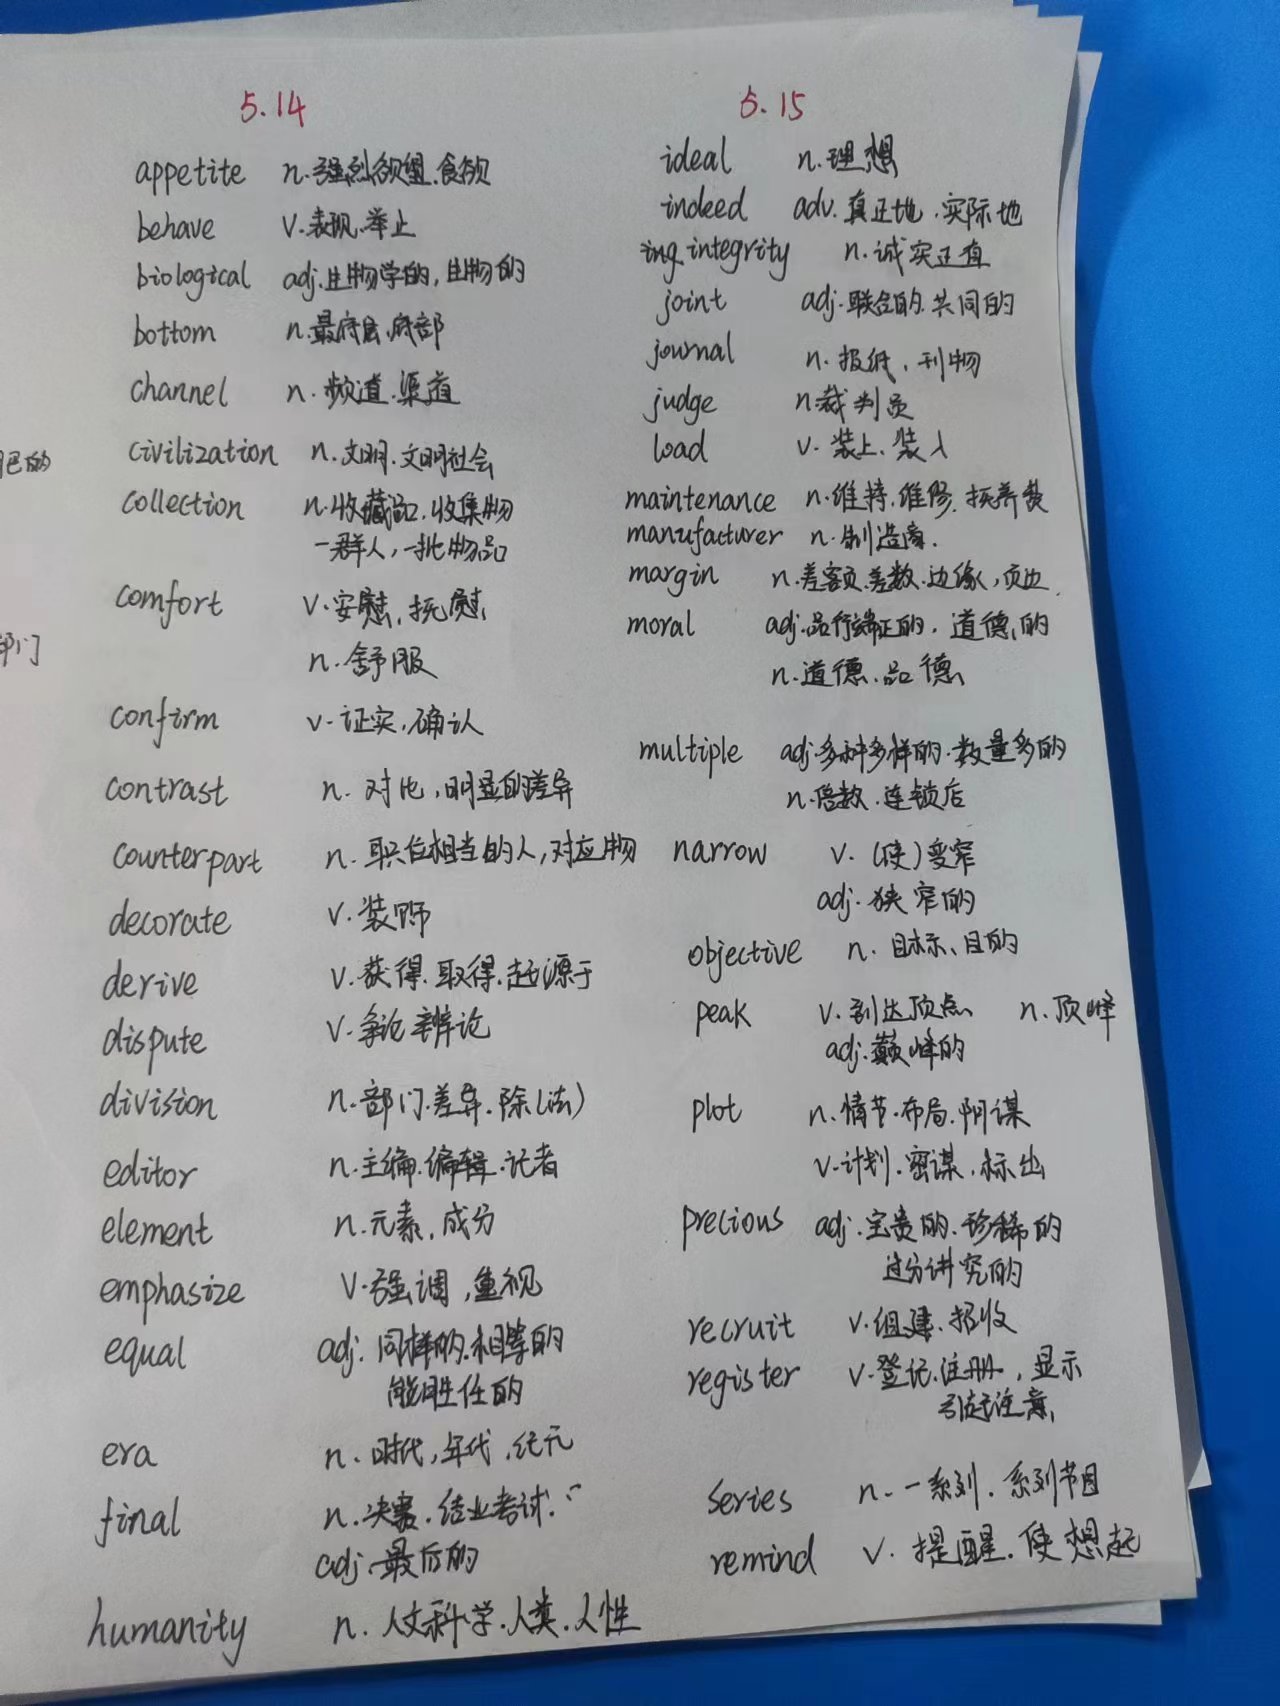 5.14
appetite n.强烈欲望.食欲
behave v.表现.举止
biological adj.生物学的,生物的
bottom n.最底层.底部
channel n.频道.渠道
civilization n.文明.文明社会
collection n.收藏品.收集物
一群人,一批物品
comfort v.安慰,抚慰
n.舒服
confirm v.证实,确认
contrast n.对比,明显的差异
counterpart n.职位相当的人,对应物
decorate v.装饰
derive v.获得.取得.起源于
dispute v.争论 辨论
division n.部门.差异.除(法)
editor n.主编.编辑.记者
element n.元素,成分
emphasize v.强调,重视
equal adj.同样的.相等的
能胜任的
era n.时代,年代,纪元
final n.决赛.结业考试.
adj.最后的
humanity n.人文科学.人类.人性
5.15
ideal n.理想
indeed adv.真正地.实际地
ing integrity n.诚实正直
joint adj.联合的.共同的
journal n.报纸,刊物
judge n.裁判员
load v.装上.装入
maintenance n.维持.维修.抚养费
manufacturer n.制造商.
margin n.差额.差数.边缘,页边
moral adj.品行端正的,道德的
n.道德.品德
multiple adj.多种多样的.数量多的
n.倍数.连锁店
narrow v.(使)变窄
adj.狭窄的
objective n.目标、目的
peak v.到达顶点 n.顶峰
adj.巅峰的
plot n.情节.布局.阴谋
v.计划.密谋,标出
precious adj.宝贵的.珍稀的
过分讲究的
recruit v.组建.招收
register v.登记.注册,显示
引起注意
series n.一系列.系列节目
remind v.提醒.使想起
部门